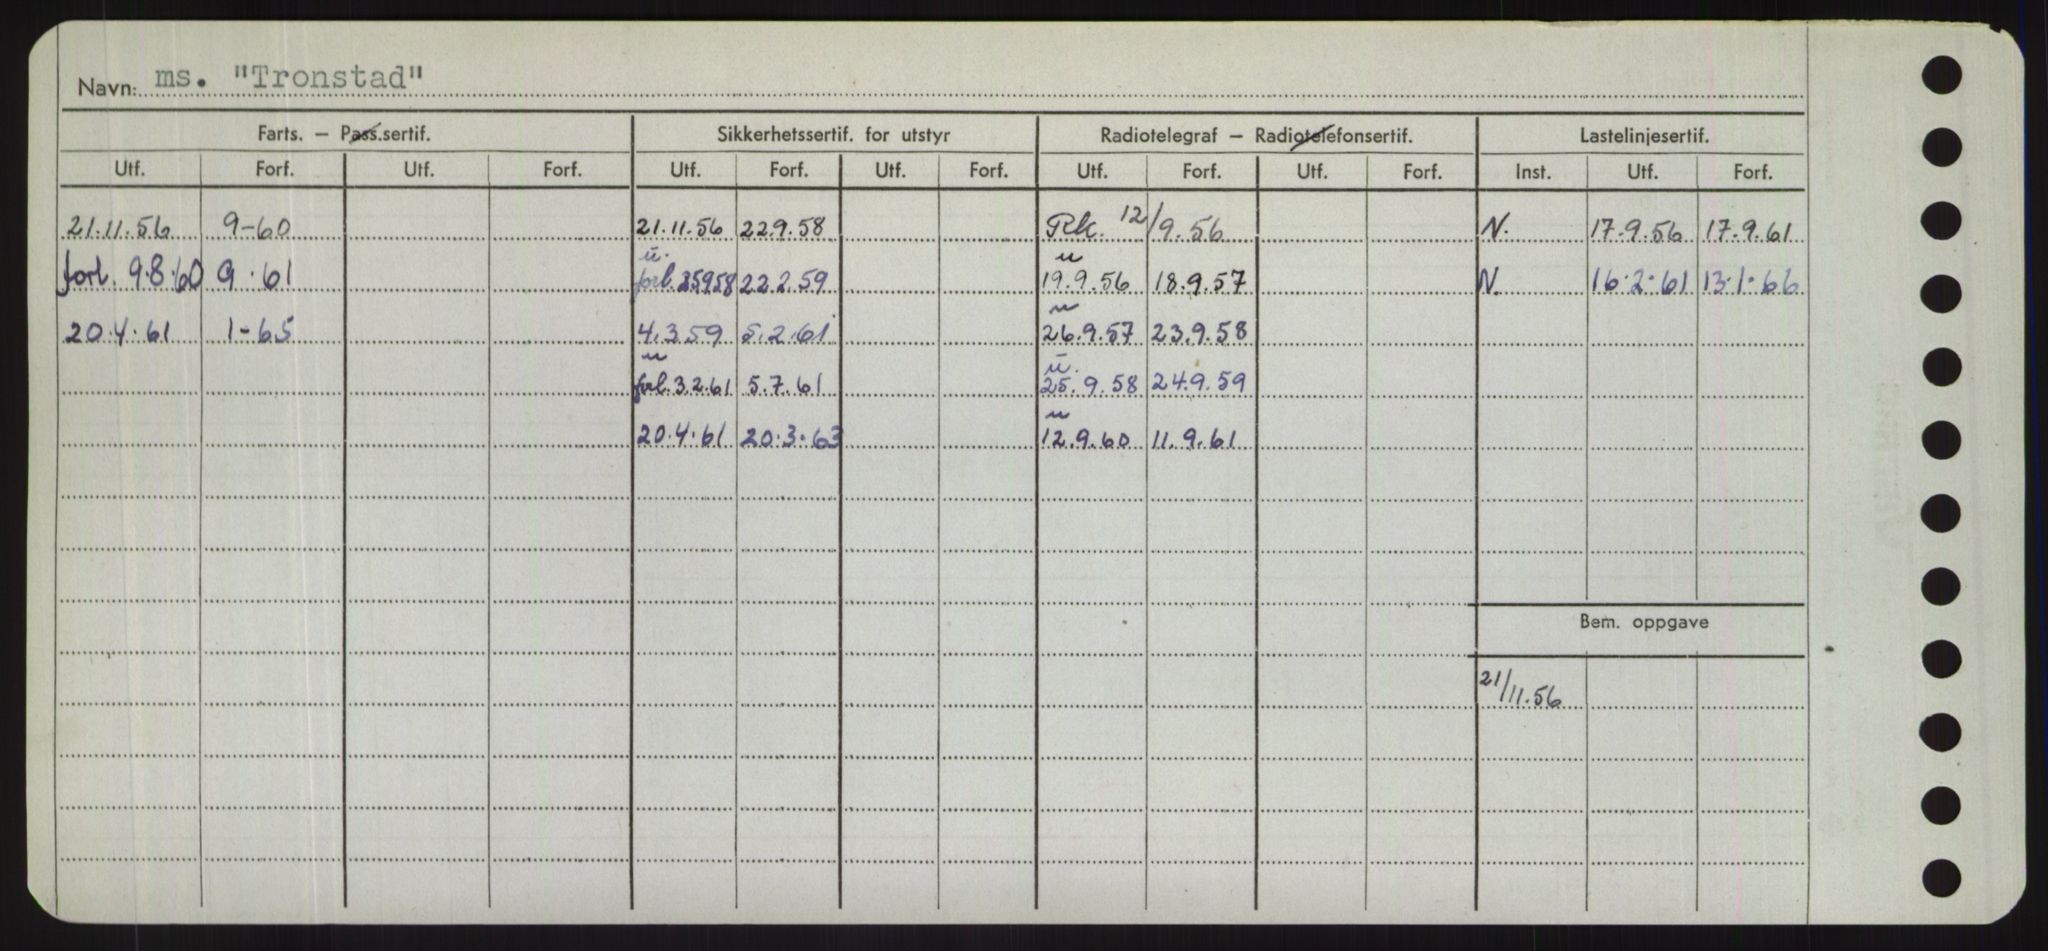 Navn: ms. "Tronstad"
Farts. — Pass.sertif. Sikkerhetssertif. for utstyr Radiotelegraf — Radiotelefonsertif. Lastelinjesertif.
Utf. Forf. Utf. Forf. Utf. Forf. Utf. Forf. Utf. Forf. Utf. Forf. Inst. Utf. Forf.
21.11.56 9-60 21.11.56 22.9.58 Rk. 12/9.56 N. 17.9.56 17.9.61
u. u
forl. 9.8.60 9.61 forl. 25958 22.2.59 19.9.56 18.9.57 N. 16.2.61 13.1.66
u
20.4.61 1-65 4.3.59 5.2.61 26.9.57 23.9.58
u u.
forl. 3.2.61 5.7.61 25.9.58 24.9.59
u
20.4.61 20.3.63 12.9.60 11.9.61
Bem. oppgave
21/11.56